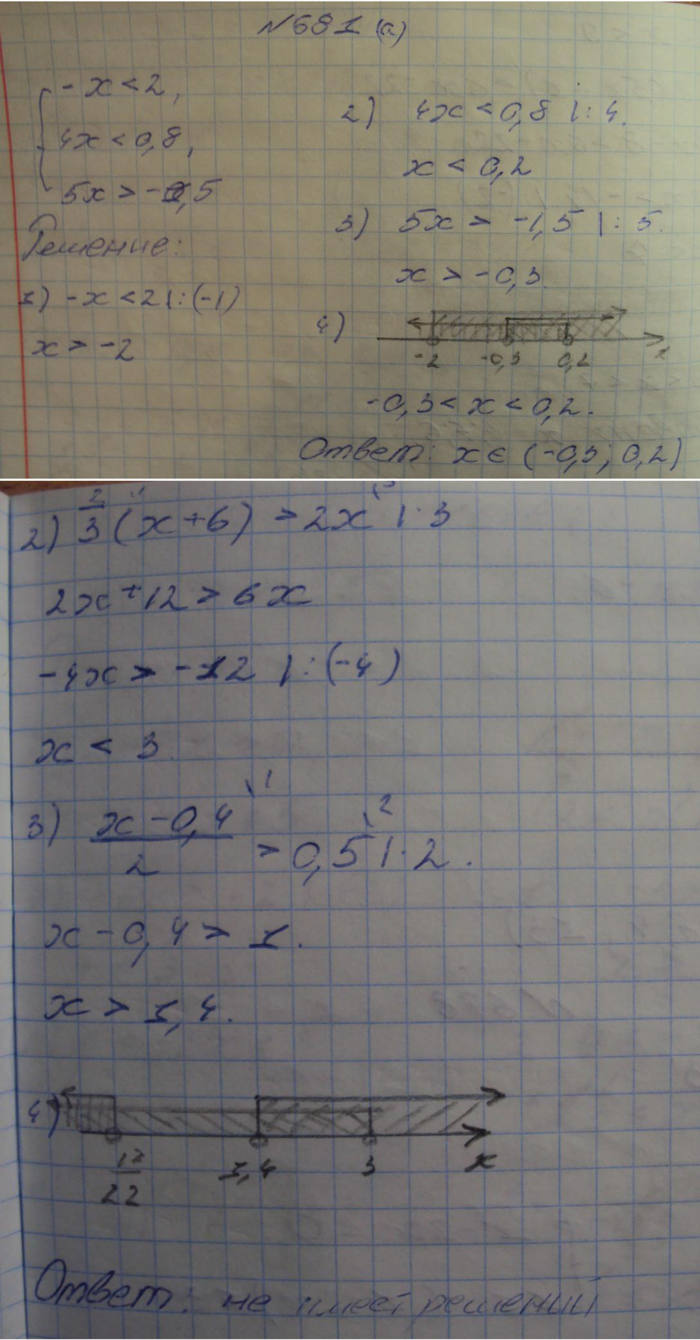 N 681 (а)
{ -x < 2,
4x < 0,8,
5x > -1,5
Решение:
1) -x < 2 | : (-1)
x > -2
2) 4x < 0,8 | : 4.
x < 0,2
3) 5x > -1,5 | : 5.
x > -0,3
4)
-2 -0,3 0,2 x
-0,3 < x < 0,2.
Ответ: x ∈ (-0,3; 0,2)
2) 2/3 (x + 6) > 2x | · 3
2x + 12 > 6x
-4x > -12 | : (-4)
x < 3.
3) (x - 0,4)/2 \1 > 0,5 \2 | · 2.
x - 0,4 > 1.
x > 1,4.
4)
/22 1,4 3 x
Ответ: не имеет решений